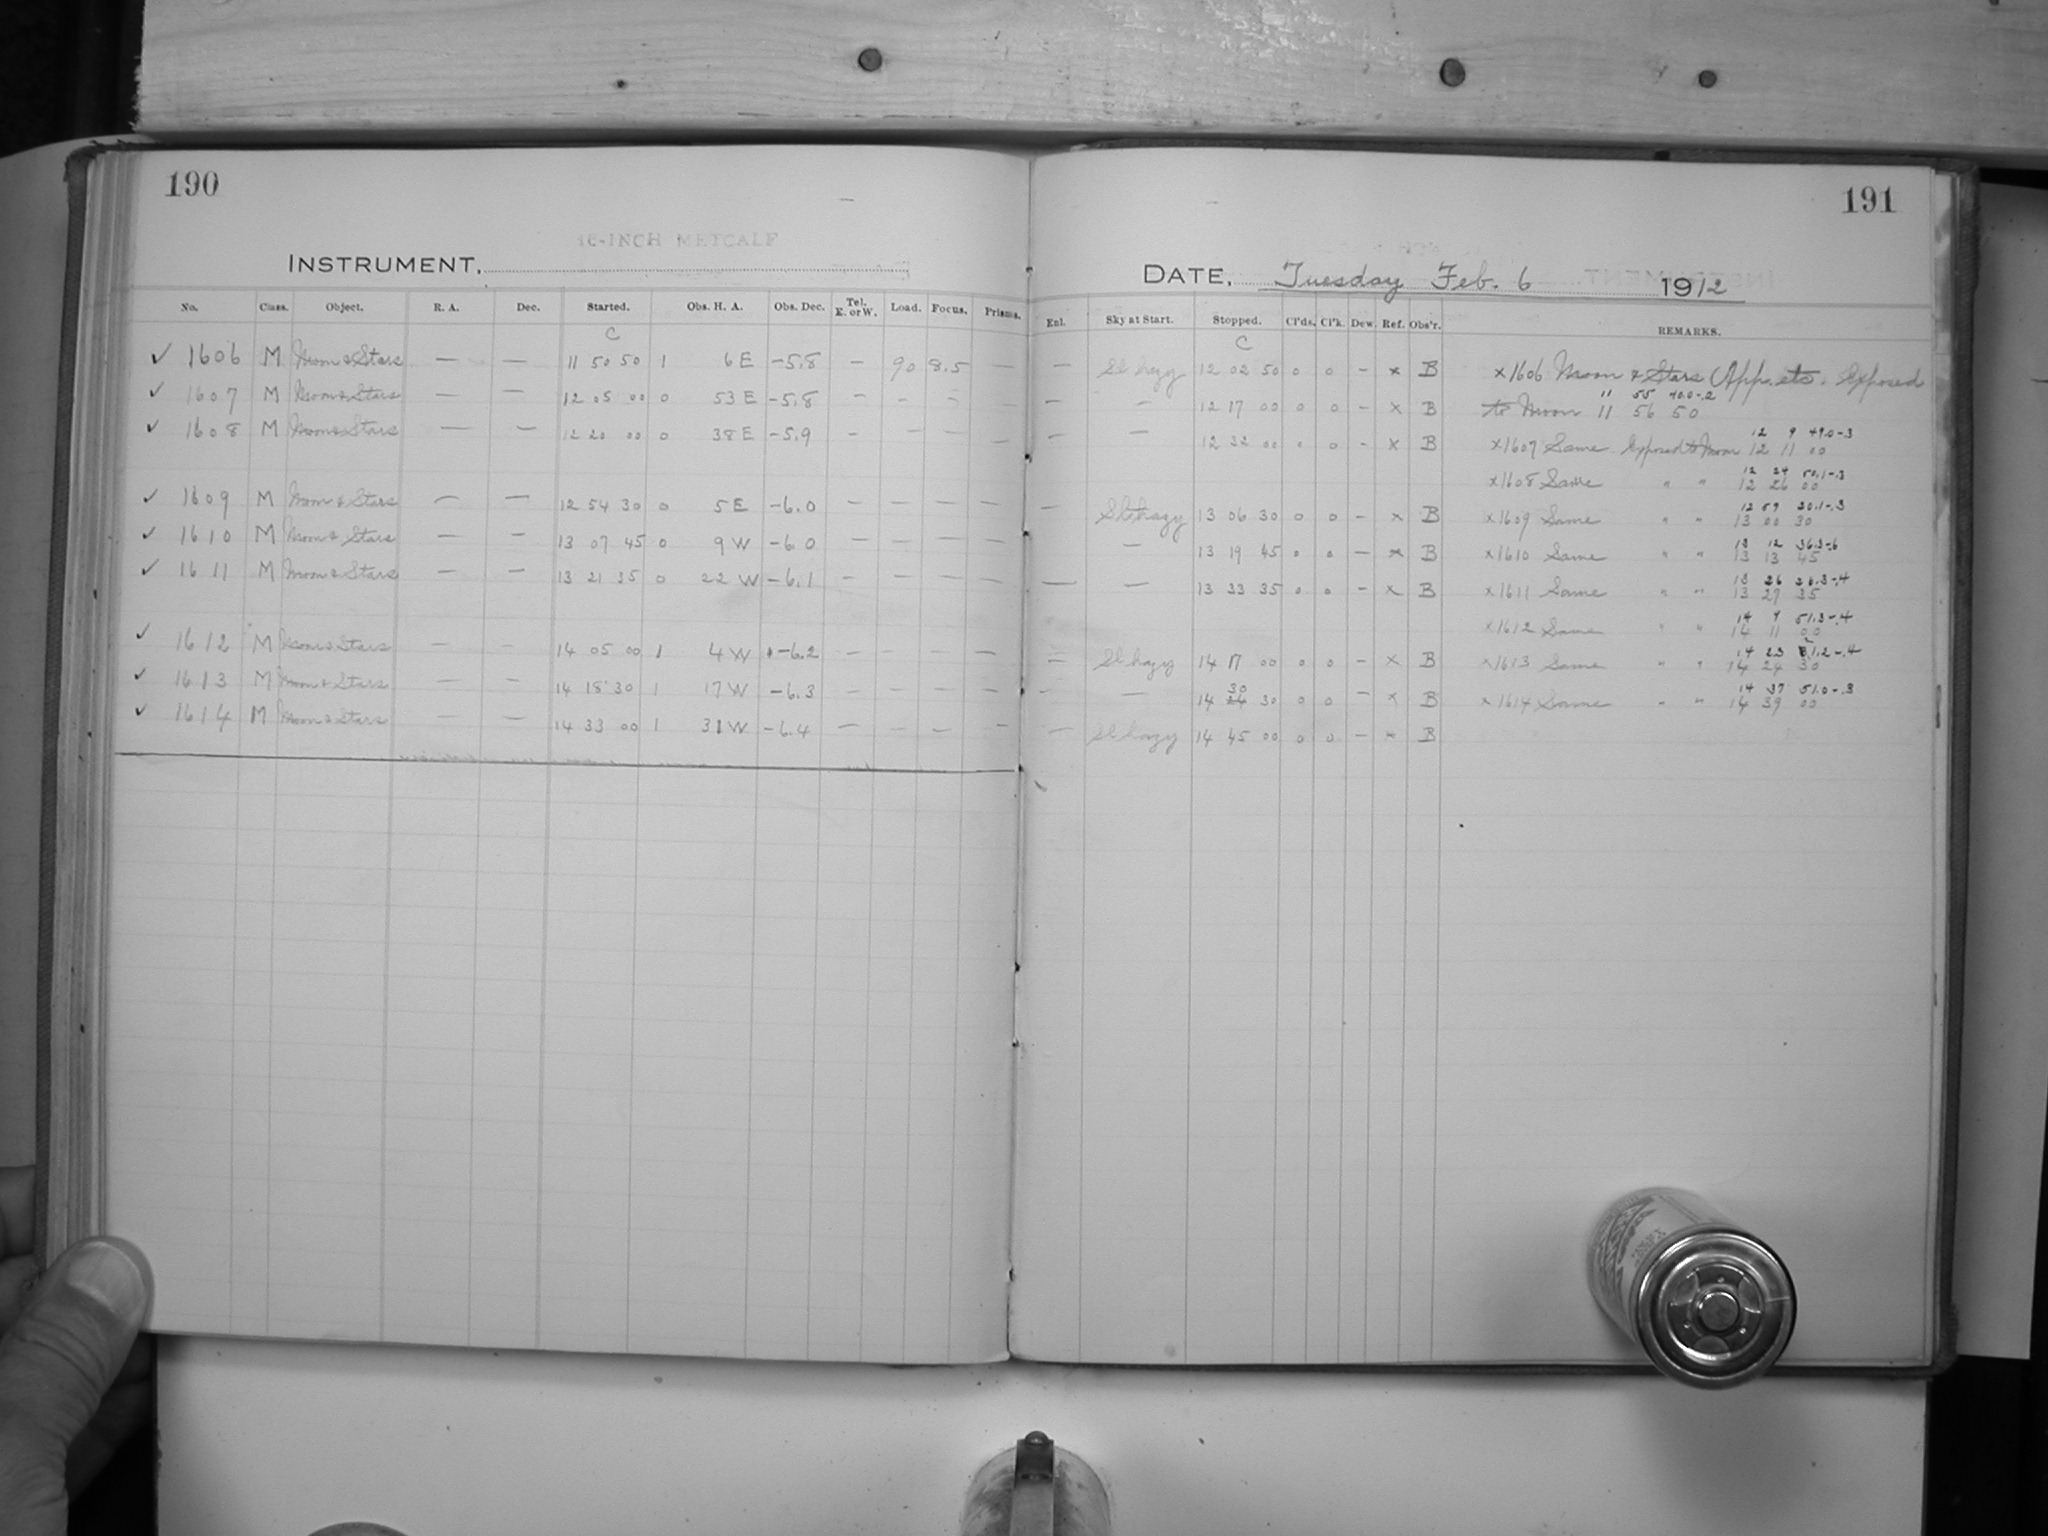 190
16-INCH METCALF
INSTRUMENT,
No. Class. Object. R. A. Dec. Started. Obs. H. A. Obs. Dec. Tel. E. or W. Load. Focus. Prisms.
C
✓ 1606 M Moon & Stars — — 11 50 50 1 6 E -5.8 — 90 8.5 —
✓ 1607 M Moon & Stars — — 12 05 00 0 53 E -5.8 — - - —
✓ 1608 M Moon & Stars — — 12 20 00 0 38 E -5.9 — — — —
✓ 1609 M Moon & Stars — — 12 54 30 0 5 E -6.0 — — — —
✓ 1610 M Moon & Stars — — 13 07 45 0 9 W -6.0 — — — —
✓ 1611 M Moon & Stars — — 13 21 35 0 22 W -6.1 — — — —
✓ 1612 M Moon & Stars — — 14 05 00 1 4 W -6.2 — — — —
✓ 1613 M Moon & Stars — — 14 18 30 1 17 W -6.3 — — — —
✓ 1614 M Moon & Stars — — 14 33 00 1 31 W -6.4 — — — —
191
DATE, Tuesday Feb. 6 1912
Enl. Sky at Start. Stopped. Cl'ds. Cl'k. Dew. Ref. Obs'r. REMARKS.
C
— Sl hazy 12 02 50 0 0 - x B
— — 12 17 00 0 0 - x B
— — 12 32 00 0 0 - x B
— Sl hazy 13 06 30 0 0 - x B
— 13 19 45 0 0 — x B
— — 13 33 35 0 0 - x B
— Sl hazy 14 17 00 0 0 - x B
30
- — 14 24 30 0 0 - x B
— Sl hazy 14 45 00 0 0 - x B
x1606 Moon & Stars (App. etc. Exposed
11 55 40.0-.2
to Moon 11 56 50
12 9 49.0-.3
x1607 Same Exposed to Moon 12 11 00
12 24 50.1-.3
x1608 Same " " 12 26 00
12 59 20.1-.3
x1609 Same " " 13 00 30
13 12 36.3-.6
x1610 Same " " 13 13 45
13 26 26.3-.4
x1611 Same " " 13 27 35
14 9 51.3-.4
x1612 Same " " 14 11 00
14 23 21.2-.4
x1613 Same " " 14 24 30
14 37 51.0-.3
x1614 Same " " 14 39 00